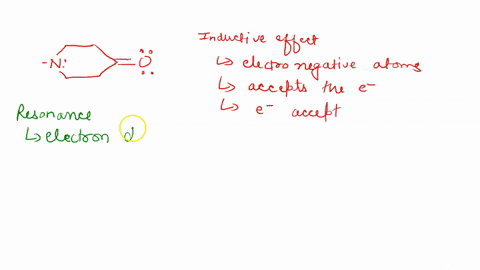 Inductive effect
↳ electronegative atoms
↳ accepts the e⁻
↳ e⁻ accept
-N: =O
Resonance
↳ electron d